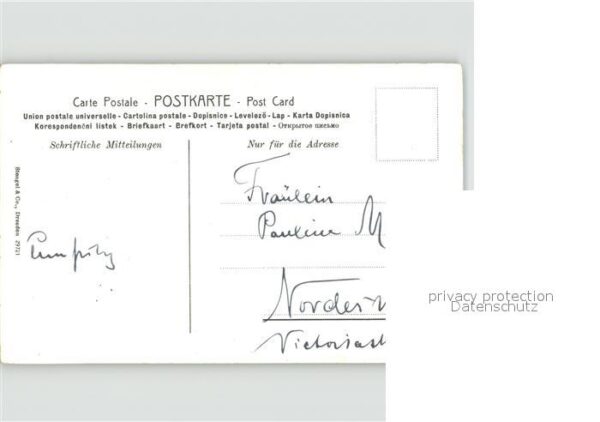 Carte Postale - POSTKARTE - Post Card
Union postale universelle - Cartolina postale - Dopisnice - Levelező-Lap - Karta Dopisnica
Korespondenční lístek - Briefkaart - Brefkort - Tarjeta postal - Открытое письмо
Schriftliche Mitteilungen
Nur für die Adresse
Stengel & Co., Dresden 29721
Fräulein
Pauline M
Norder
Victoriast
privacy protection
Datenschutz